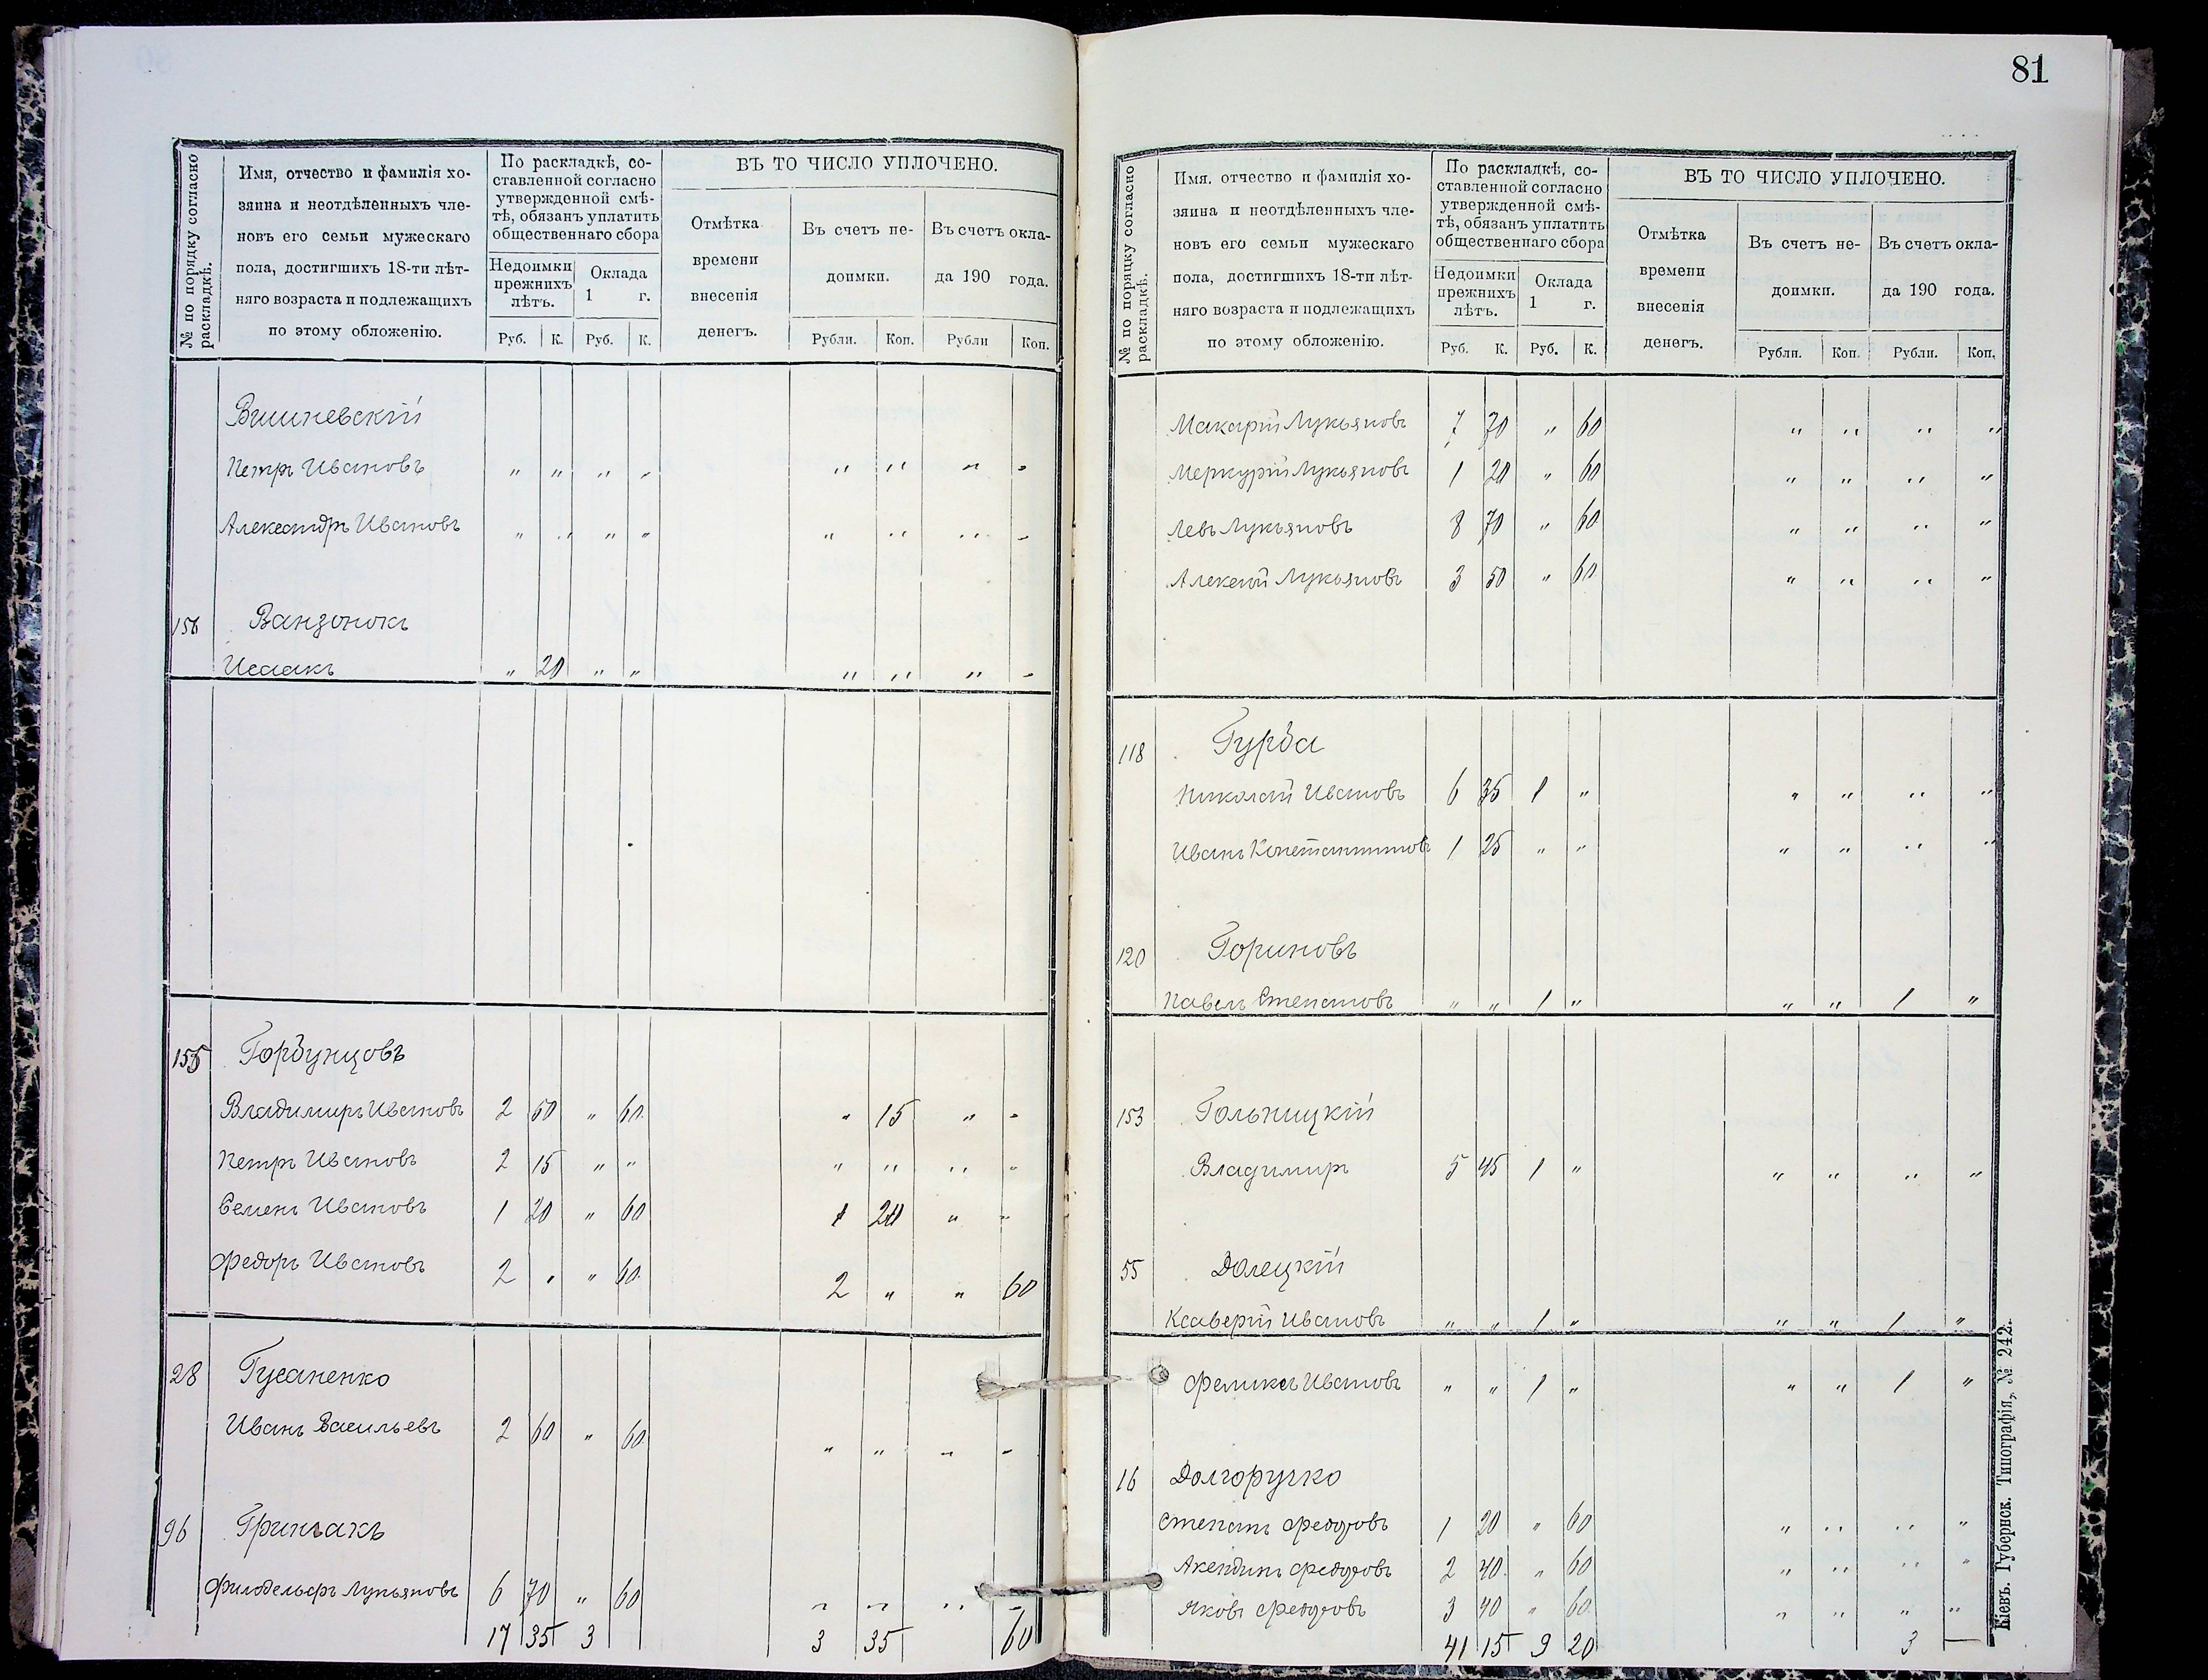 № по порядку согласно раскладкѣ.
Имя, отчество и фамилія хо-
зяина и неотдѣленныхъ чле-
новъ его семьи мужескаго
пола, достигшихъ 18-ти лѣт-
няго возраста и подлежащихъ
по этому обложенію.
По раскладкѣ, со-
ставленной согласно
утвержденной смѣ-
тѣ, обязанъ уплатить
общественнаго сбора
Недоимки
прежнихъ
лѣтъ.
Оклада
1 г.
Руб. К. Руб. К.
ВЪ ТО ЧИСЛО УПЛОЧЕНО.
Отмѣтка
времени
внесенія
денегъ.
Въ счетъ не-
доимки.
Въ счетъ окла-
да 190 года.
Рубли. Коп. Рубли Коп.
Вишневскій
Петръ Ивановъ " " " " " " " "
Александръ Ивановъ " " " " " " " "
156 Ванзонокъ
Исаакъ " 20 " " " " " "
155 Горбунцовъ
Владимиръ Ивановъ 2 50 " 60 " 15 " "
Петръ Ивановъ 2 15 " " " " " "
Семенъ Ивановъ 1 20 " 60 1 20 " "
Федоръ Ивановъ 2 " " 60 2 " " 60
28 Гусаненко
Иванъ Васильевъ 2 60 " 60 " " " "
96 Гринчакъ
Филадельфъ Лукьяновъ 6 70 " 60 " " " "
17 35 3 3 35 60
81
№ по порядку согласно раскладкѣ.
Имя. отчество и фамилія хо-
зяина и неотдѣленныхъ чле-
новъ его семьи мужескаго
пола, достигшихъ 18-ти лѣт-
няго возраста и подлежащихъ
по этому обложенію.
По раскладкѣ, со-
ставленной согласно
утвержденной смѣ-
тѣ, обязанъ уплатить
общественнаго сбора
Недоимки
прежнихъ
лѣтъ.
Оклада
1 г.
Руб. К. Руб. К.
ВЪ ТО ЧИСЛО УПЛОЧЕНО.
Отмѣтка
времени
внесенія
денегъ.
Въ счетъ не-
доимки.
Въ счетъ окла-
да 190 года.
Рубли. Коп. Рубли. Коп.
Макарій Лукьяновъ 7 70 " 60 " " " "
Меркурій Лукьяновъ 1 20 " 60 " " " "
Левъ Лукьяновъ 8 70 " 60 " " " "
Алексѣй Лукьяновъ 3 50 " 60 " " " "
118 Гурба
Николай Ивановъ 6 35 1 " " " " "
Иванъ Константиновъ 1 25 " " " " " "
120 Гориновъ
Павелъ Степановъ " " 1 " " " 1 "
153 Гольницкій
Владимиръ 5 45 1 " " " " "
55 Долецкій
Ксаверій Ивановъ " " 1 " " " 1 "
Феликсъ Ивановъ " " 1 " " " 1 "
16 Долгоручко
Степанъ Федоровъ 1 20 " 60 " " " "
Акендинъ Федоровъ 2 40 " 60 " " " "
Яковъ Федоровъ 3 40 " 60 " " " "
41 15 9 20 3 —
Кіевъ. Губернск. Типографія, № 242.